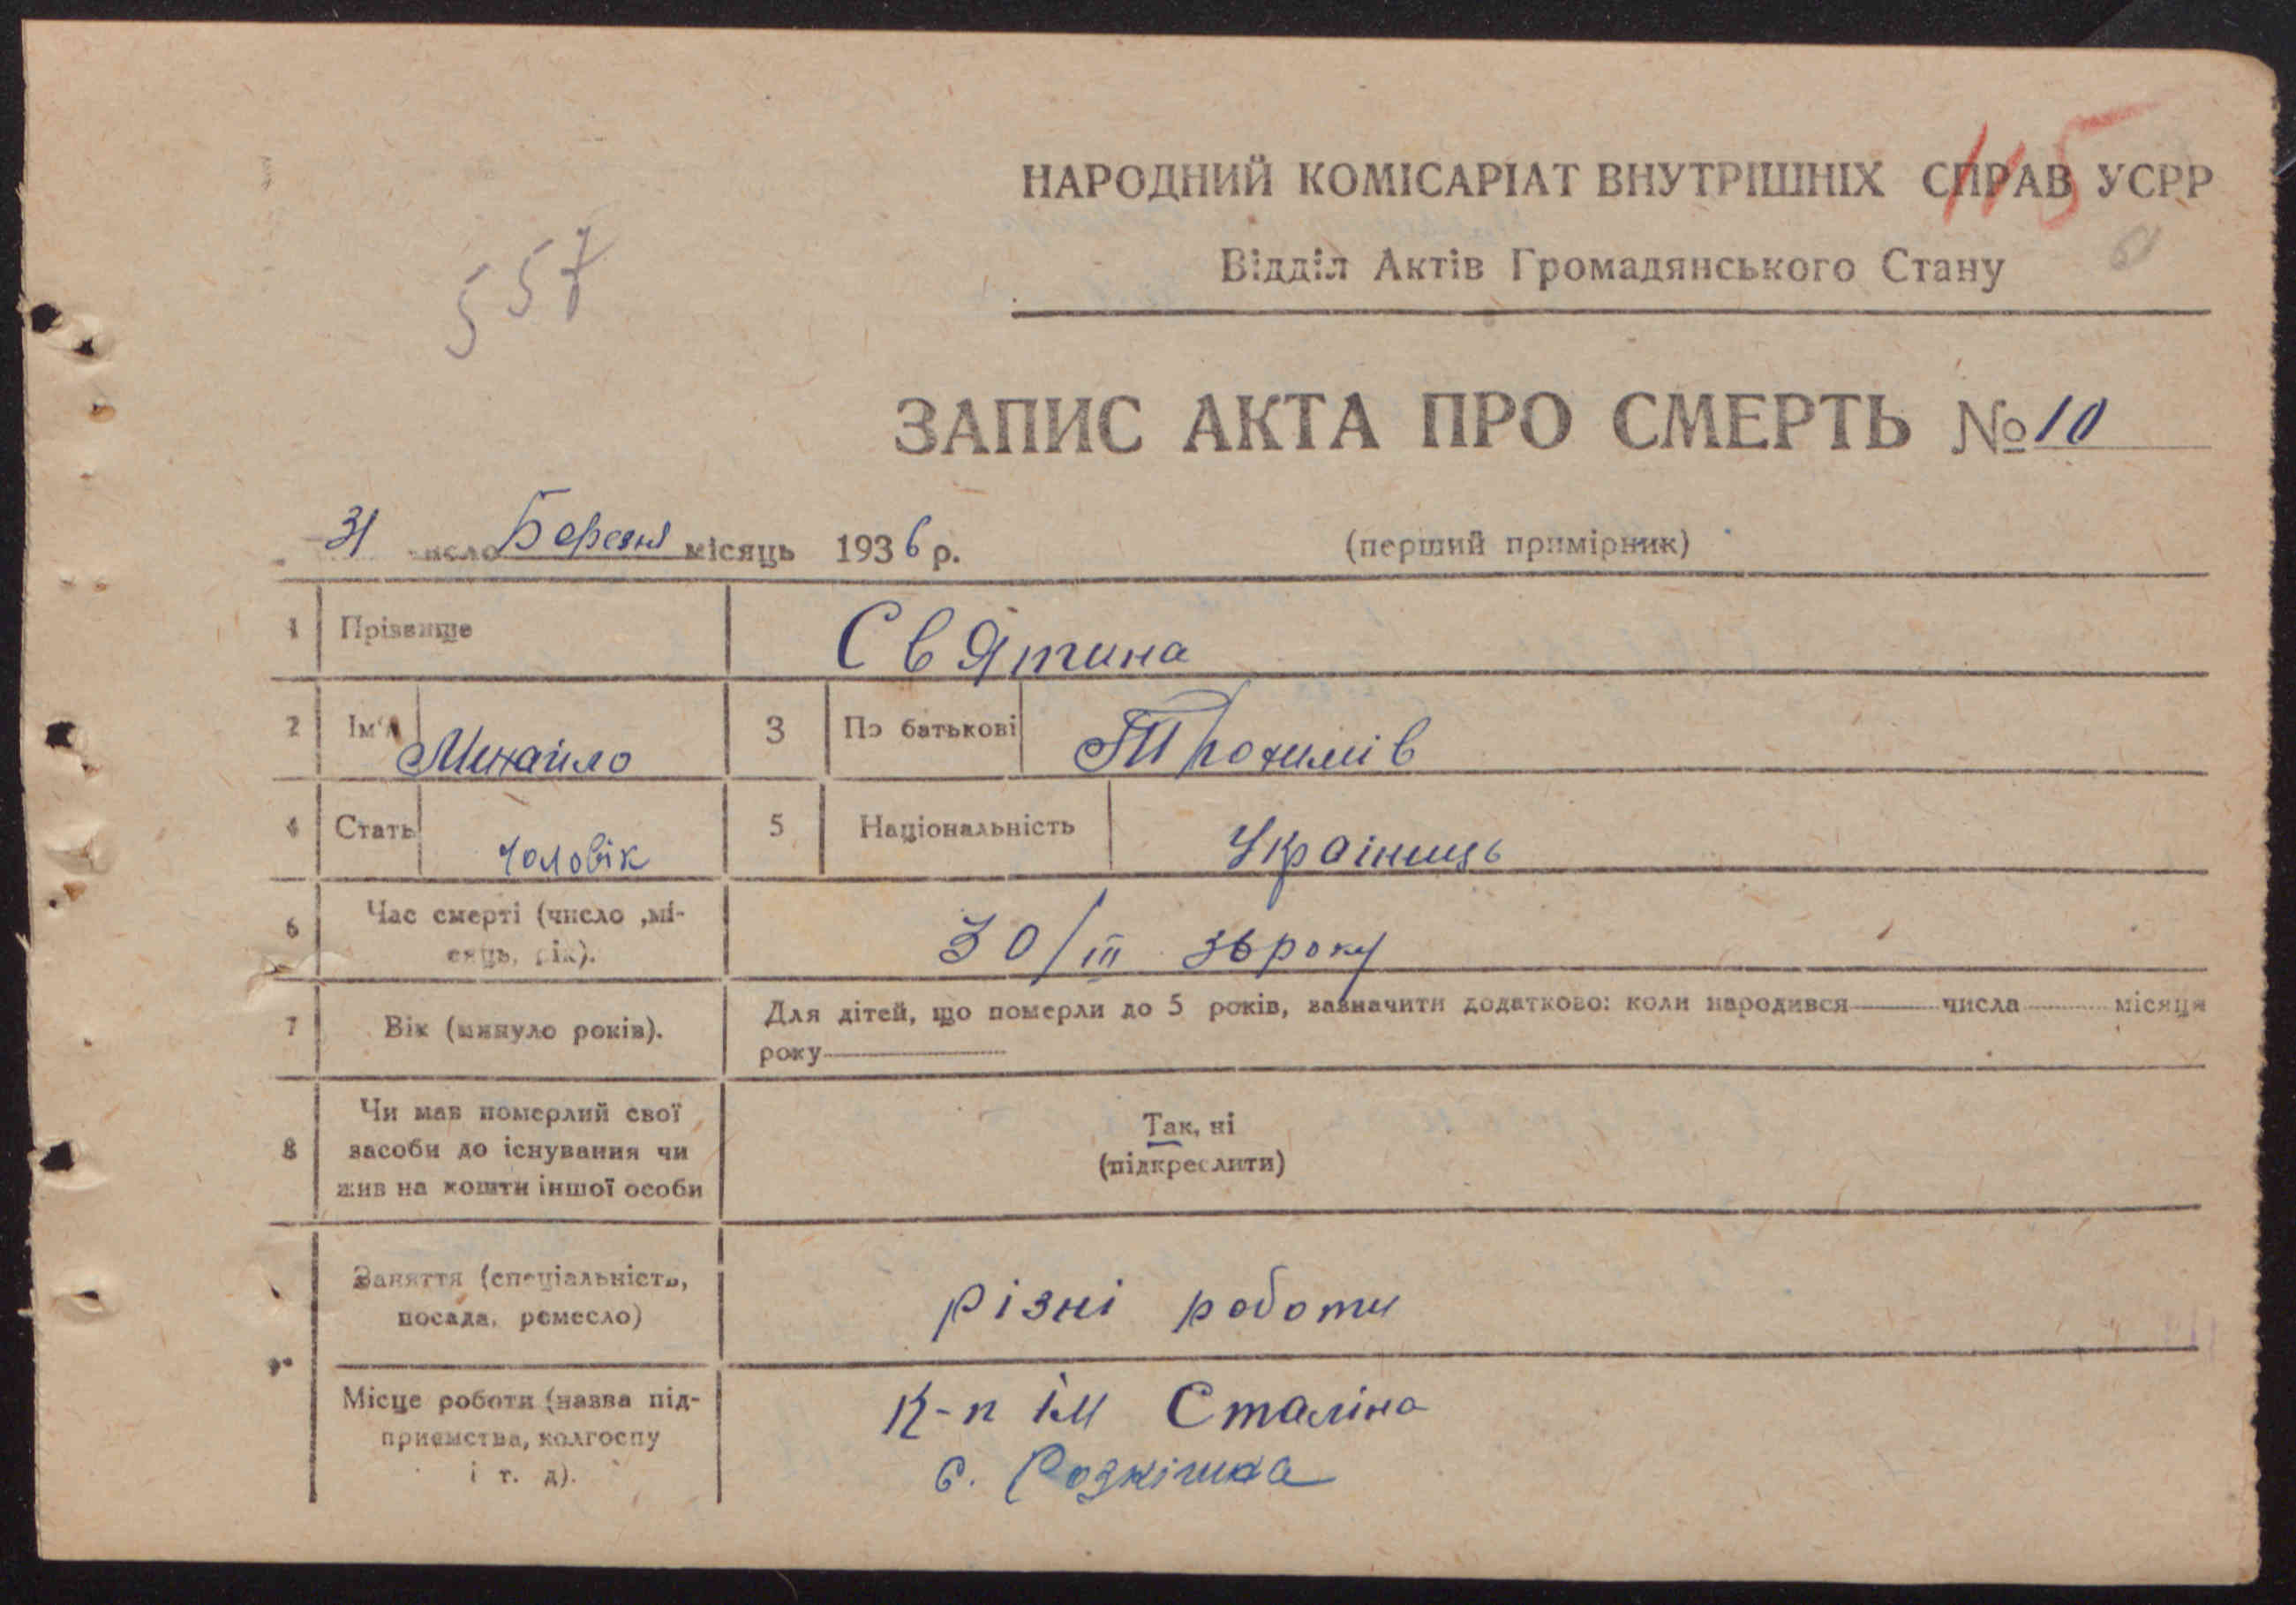 115
НАРОДНИЙ КОМІСАРІАТ ВНУТРІШНІХ СПРАВ УСРР
557
Відділ Актів Громадянського Стану
ЗАПИС АКТА ПРО СМЕРТЬ № 10
31 число Березня місяць 1936 р. (перший примірник)
1 Прізвище Святина
2 Ім'я Михайло 3 По батькові Трохимів
4 Стать Чоловік 5 Національність Українець
6 Час смерті (число ,мі-
сяць, рік). 30/III 36 року
7 Вік (минуло років). Для дітей, що померли до 5 років, зазначити додатково: коли народився числа місяця
року
8 Чи мав померлий свої
засоби до існування чи
жив на кошти іншої особи
Так, ні
(підкреслити)
Заняття (спеціальність,
посада, ремесло) різні роботи
Місце роботи (назва під-
приємства, колгоспу
і т. д).
К-п ім Сталіна
с. Розкішна